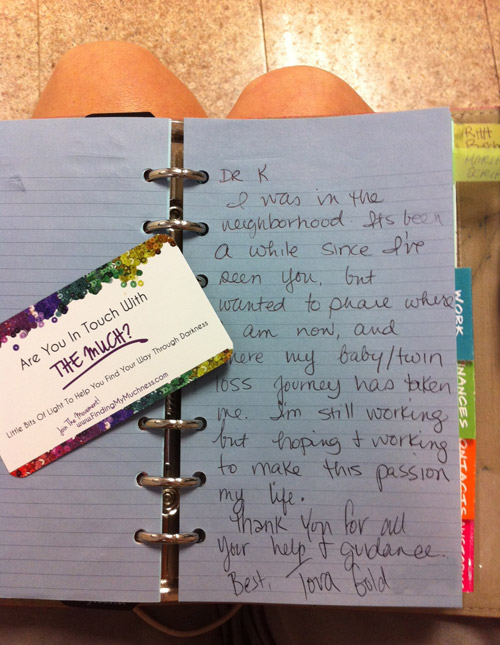 Are You In Touch With
THE MUCH?
Little Bits Of Light To Help You Find Your Way Through Darkness
Join The Movement!
www.FindingMyMuchness.com
Dr K
I was in the
neighborhood Its been
a while since I've
seen you, but
wanted to share where
I am now, and
where my baby/twin
loss journey has taken
me. I'm still working
but hoping & working
to make this passion
my life.
Thank you for all
your help & guidance.
Best, Tova Gold
WORK
NANCES
ONTACTS